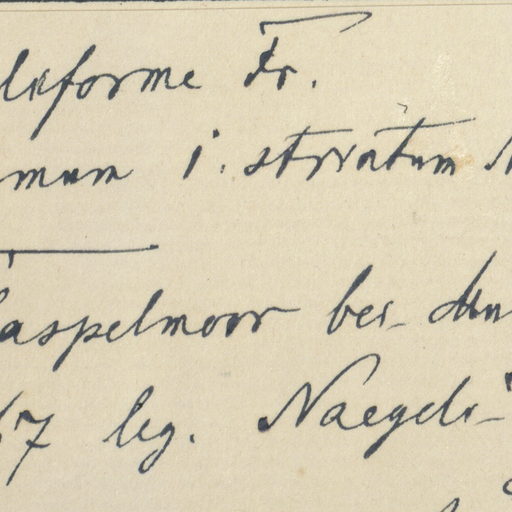 forme Fr.
mum i. striatum
aspelmoor bei
67 leg. Naegeli